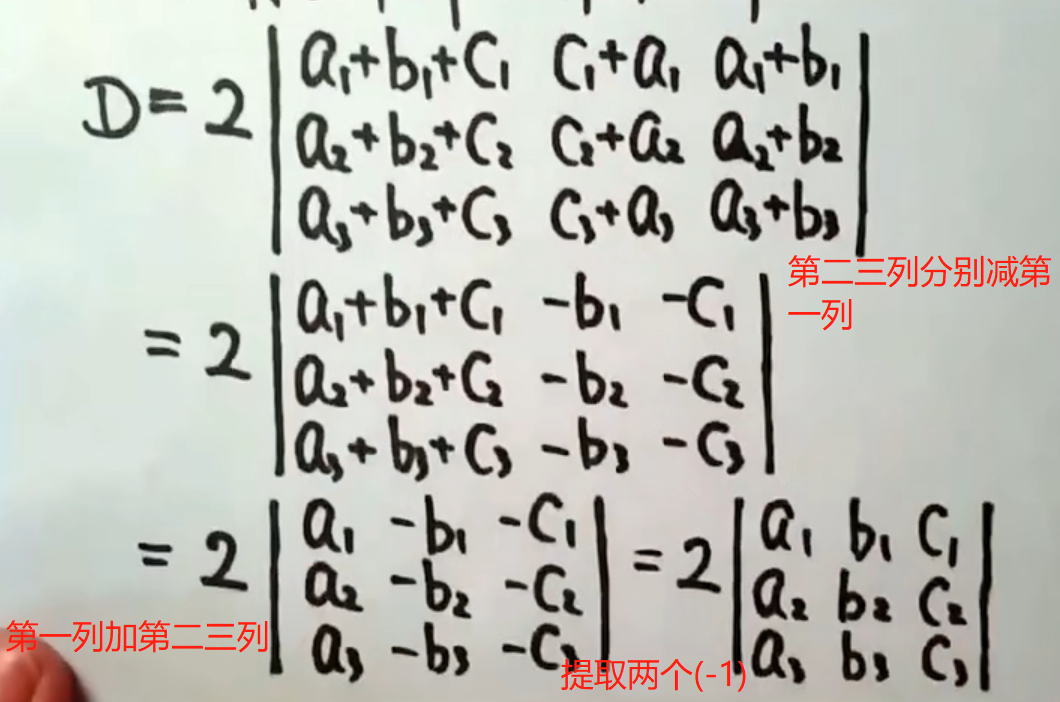 D = 2 | a₁+b₁+c₁ c₁+a₁ a₁+b₁ |
| a₂+b₂+c₂ c₂+a₂ a₂+b₂ |
| a₃+b₃+c₃ c₃+a₃ a₃+b₃ |
第二三列分别减第
一列
= 2 | a₁+b₁+c₁ -b₁ -c₁ |
| a₂+b₂+c₂ -b₂ -c₂ |
| a₃+b₃+c₃ -b₃ -c₃ |
= 2 | a₁ -b₁ -c₁ | = 2 | a₁ b₁ c₁ |
| a₂ -b₂ -c₂ | | a₂ b₂ c₂ |
| a₃ -b₃ -c₃ | | a₃ b₃ c₃ |
第一列加第二三列
提取两个(-1)